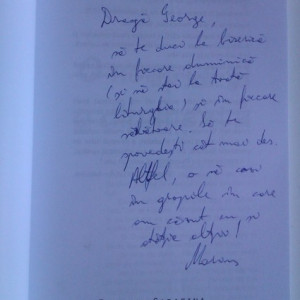 Dragă George,
să te duci la biserică
în fiecare duminică
(și să stai la toată
liturghia) și în fiecare
sărbătoare. Să te
spovedești cât mai des.
Altfel, o să cazi
în gropile în care
au căzut, cu
alții!